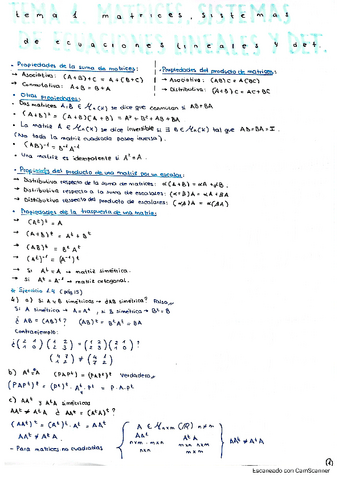 tema 1 matrices, sistemas
de ecuaciones lineales y det.
· Propiedades de la suma de matrices:
→ Asociativa: (A+B)+C = A+(B+C)
→ Conmutativa: A+B = B+A
· Propiedades del producto de matrices:
→ Asociativa: (AB)C = A(BC)
→ Distributiva: (A+B)C = AC+BC
· Otras propiedades:
- Dos matrices A,B ∈ Mn(K) se dice que conmutan si AB=BA
- (A+B)² = (A+B)(A+B) = A²+B²+AB+BA
- La matriz A ∈ Mn(K) se dice invertible si ∃ B ∈ Mn(K) tal que AB=BA=I.
(No toda la matriz cuadrada posee inversa).
- (AB)⁻¹ = B⁻¹A⁻¹
- Una matriz es idempotente si A²=A.
· Propiedades del producto de una matriz por un escalar:
→ Distributiva respecto de la suma de matrices: α(A+B) = αA+αB.
→ Distributiva respecto a la suma de escalares: (α+β)A = αA+βA
→ Distributiva respecto del producto de escalares: (αβ)A = α(βA)
· Propiedades de la traspuesta de una matriz:
→ (Aᵗ)ᵗ = A
→ (A+B)ᵗ = Aᵗ+Bᵗ
→ (AB)ᵗ = BᵗAᵗ
→ (Aᵗ)⁻¹ = (A⁻¹)ᵗ
→ Si Aᵗ=A → matriz simétrica.
→ Si Aᵗ=A⁻¹ → matriz ortogonal.
Ejercicio 1.4 (pág 15)
4) a) Si A y B simétricas → ¿AB simétrica? Falso
Si A simétrica → A=Aᵗ, si B simétrica → Bᵗ=B
¿AB = (AB)ᵗ? (AB)ᵗ = BᵗAᵗ = BA
Contraejemplo:
b) Aᵗ=A (PAPᵗ) = (PAPᵗ)ᵗ Verdadero
(PAPᵗ)ᵗ = (Pᵗ)ᵗ·Aᵗ·Pᵗ = P·A·Pᵗ
c) AAᵗ y AᵗA simétricas
AAᵗ ≠ AᵗA ¿AAᵗ = (AᵗA)ᵗ?
(AAᵗ)ᵗ = (Aᵗ)ᵗ·Aᵗ = AAᵗ
AAᵗ ≠ AᵗA
- Para matrices no cuadradas
A ∈ Mn×m (R) n≠m
AAᵗ AᵗA
n×m · m×n m×n n×m
n×n m×m
AAᵗ ≠ AᵗA
Escaneado con CamScanner